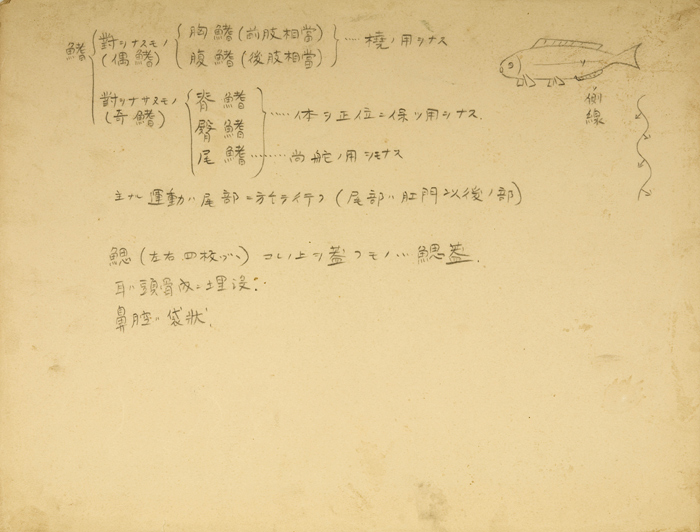 鰭 對ヲナスモノ 胸鰭(前肢相當) ……橈ノ用ヲナス
(偶鰭) 腹鰭(後肢相當)
側線
對ヲナサヌモノ 脊鰭
(奇鰭) 臀鰭 ……体ヲ正位ニ保ツ用ヲナス.
尾鰭……尚舵ノ用ヲモナス
主ナル運動ハ尾部ニ於テ行フ(尾部ハ肛門以後ノ部)
鰓(左右四枚ヅヽ) コレノ上ヲ蓋フモノハ鰓蓋.
耳ハ頭骨内ニ埋没.
鼻腔ハ袋狀.